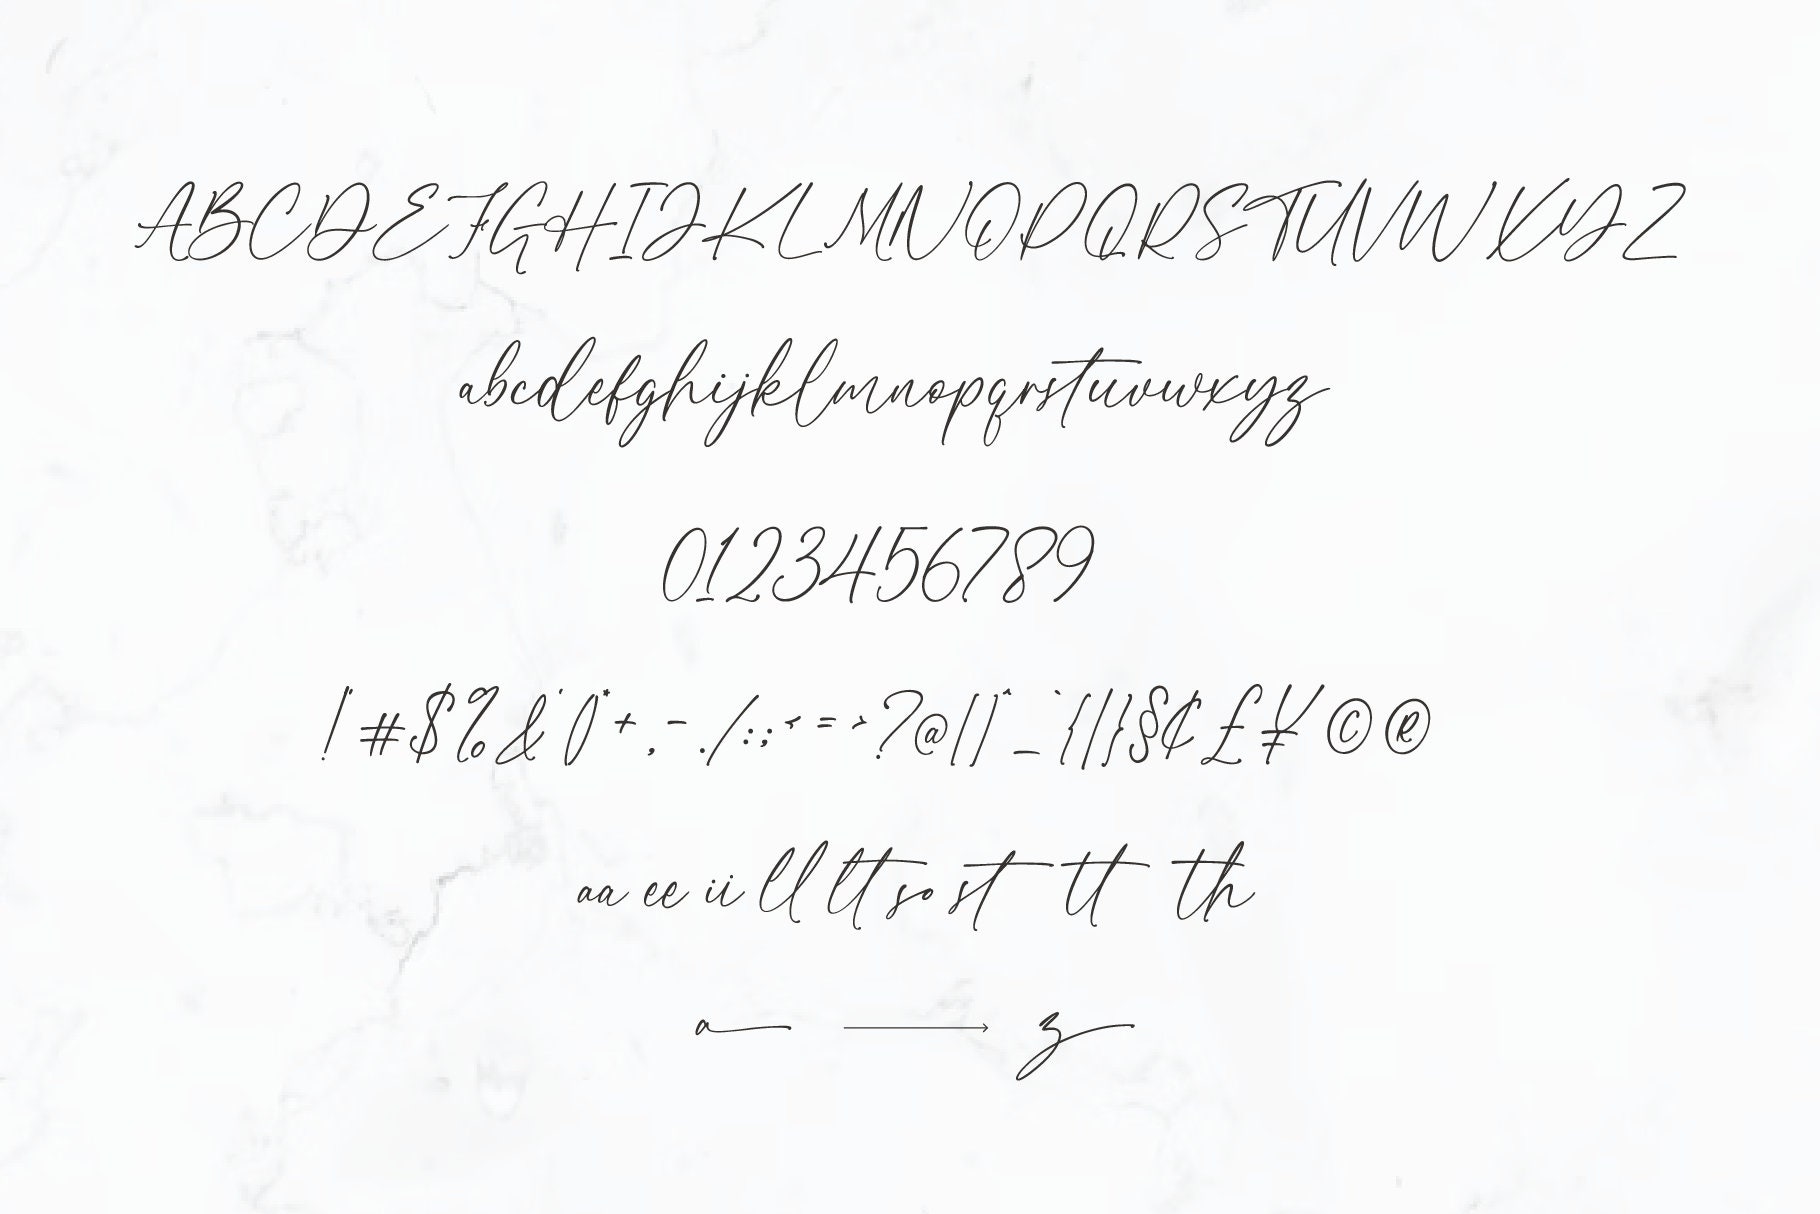 ABCDEFGHIJKLMNOPQRSTUVWXYZ
abcdefghijklmnopqrstuvwxyz
0123456789
!"#$%&'()*+,-./:;<=>?@[]^_`{|}§¢£¥©®
aa ee ii ll lt so st tt th
a → z